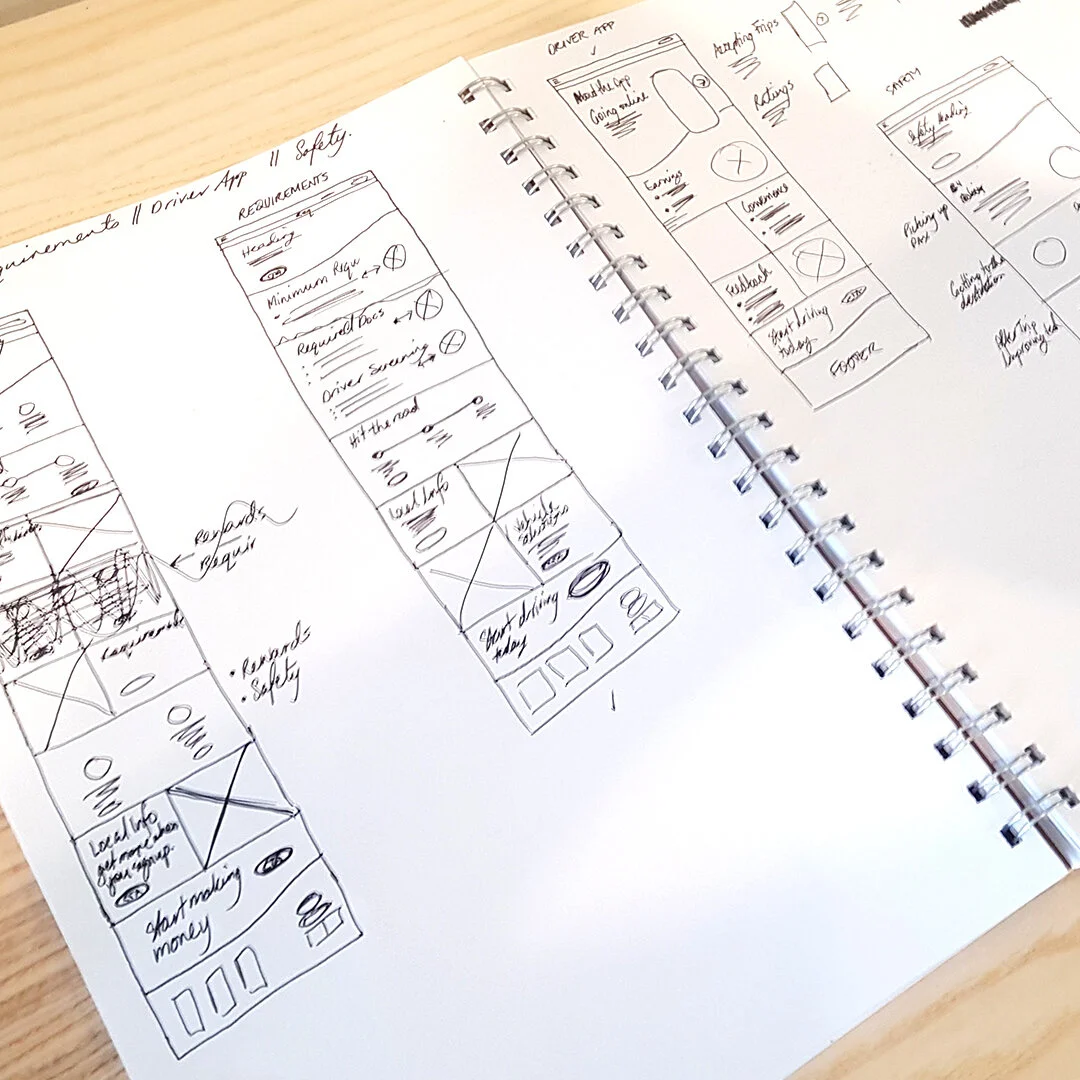 || Driver App || Safety.
REQUIREMENTS
Heading
Minimum Requ
Required Docs
Driver Screening
Hit the road
Local Info
Vehicle
Start driving
today
Rewards
Requir
• Rewards
• Safety
Local Info
get more when
you sign up.
CTA
Start making
money
CTA
DRIVER APP
About the App
Going online
Earnings
Convenience
Feedback
Start driving
today
FOOTER
Accepting Trips
Ratings
SAFETY
Safety Heading
Picking up
PAX
Getting to the
destination
After Trip